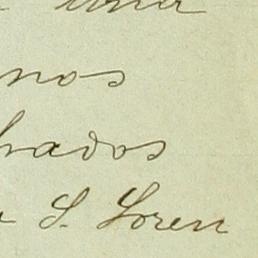 una
nos
hados
S. Loren